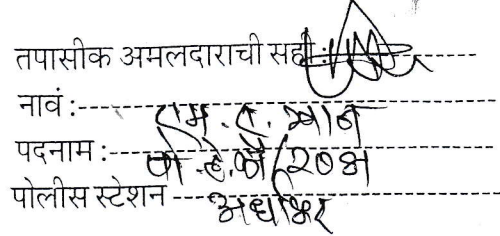 तपासीक अमलदाराची सही :
नावं :- एम. ए. खान
पदनाम :- पो. हे. कॉ/२०४
पोलीस स्टेशन